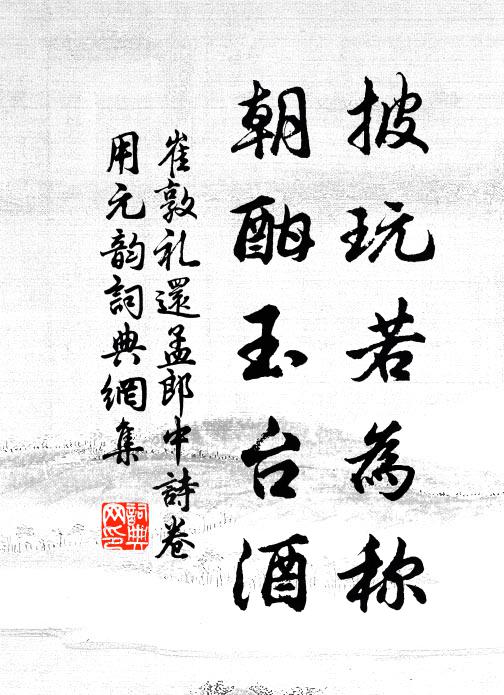 披玩若為称
朝酣玉台酒
崔敦礼還孟郎中詩卷
用元韵詞典網集
詞典網印